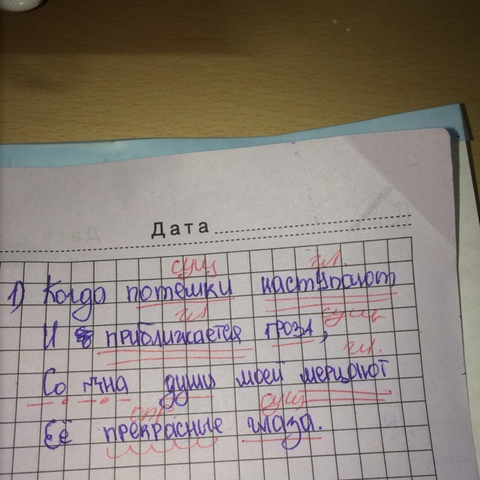 Дата
сущ гл.
1) Когда потемки наступают
гл сущ
И приближается гроза,
гл.
Со дна души моей мерцают
опр сущ
Её прекрасные глаза.